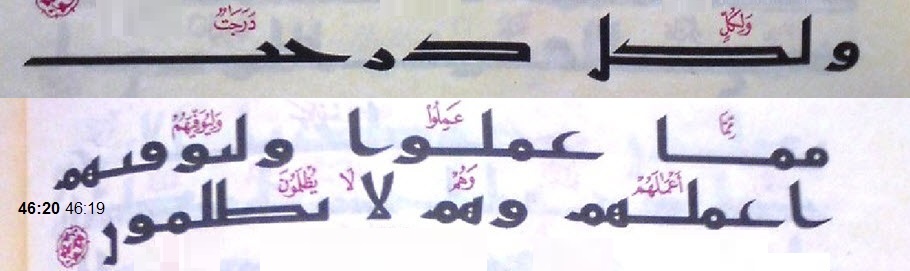 وَلِكُلٍّ دَرَجَٰتٌ
ولكل درجت
مِّمَّا عَمِلُوا وَلِيُوَفِّيَهُمْ
مما عملوا وليوفيهم
أَعْمَٰلَهُمْ وَهُمْ لَا يُظْلَمُونَ
اعملهم وهم لا يظلمون
46:20 46:19